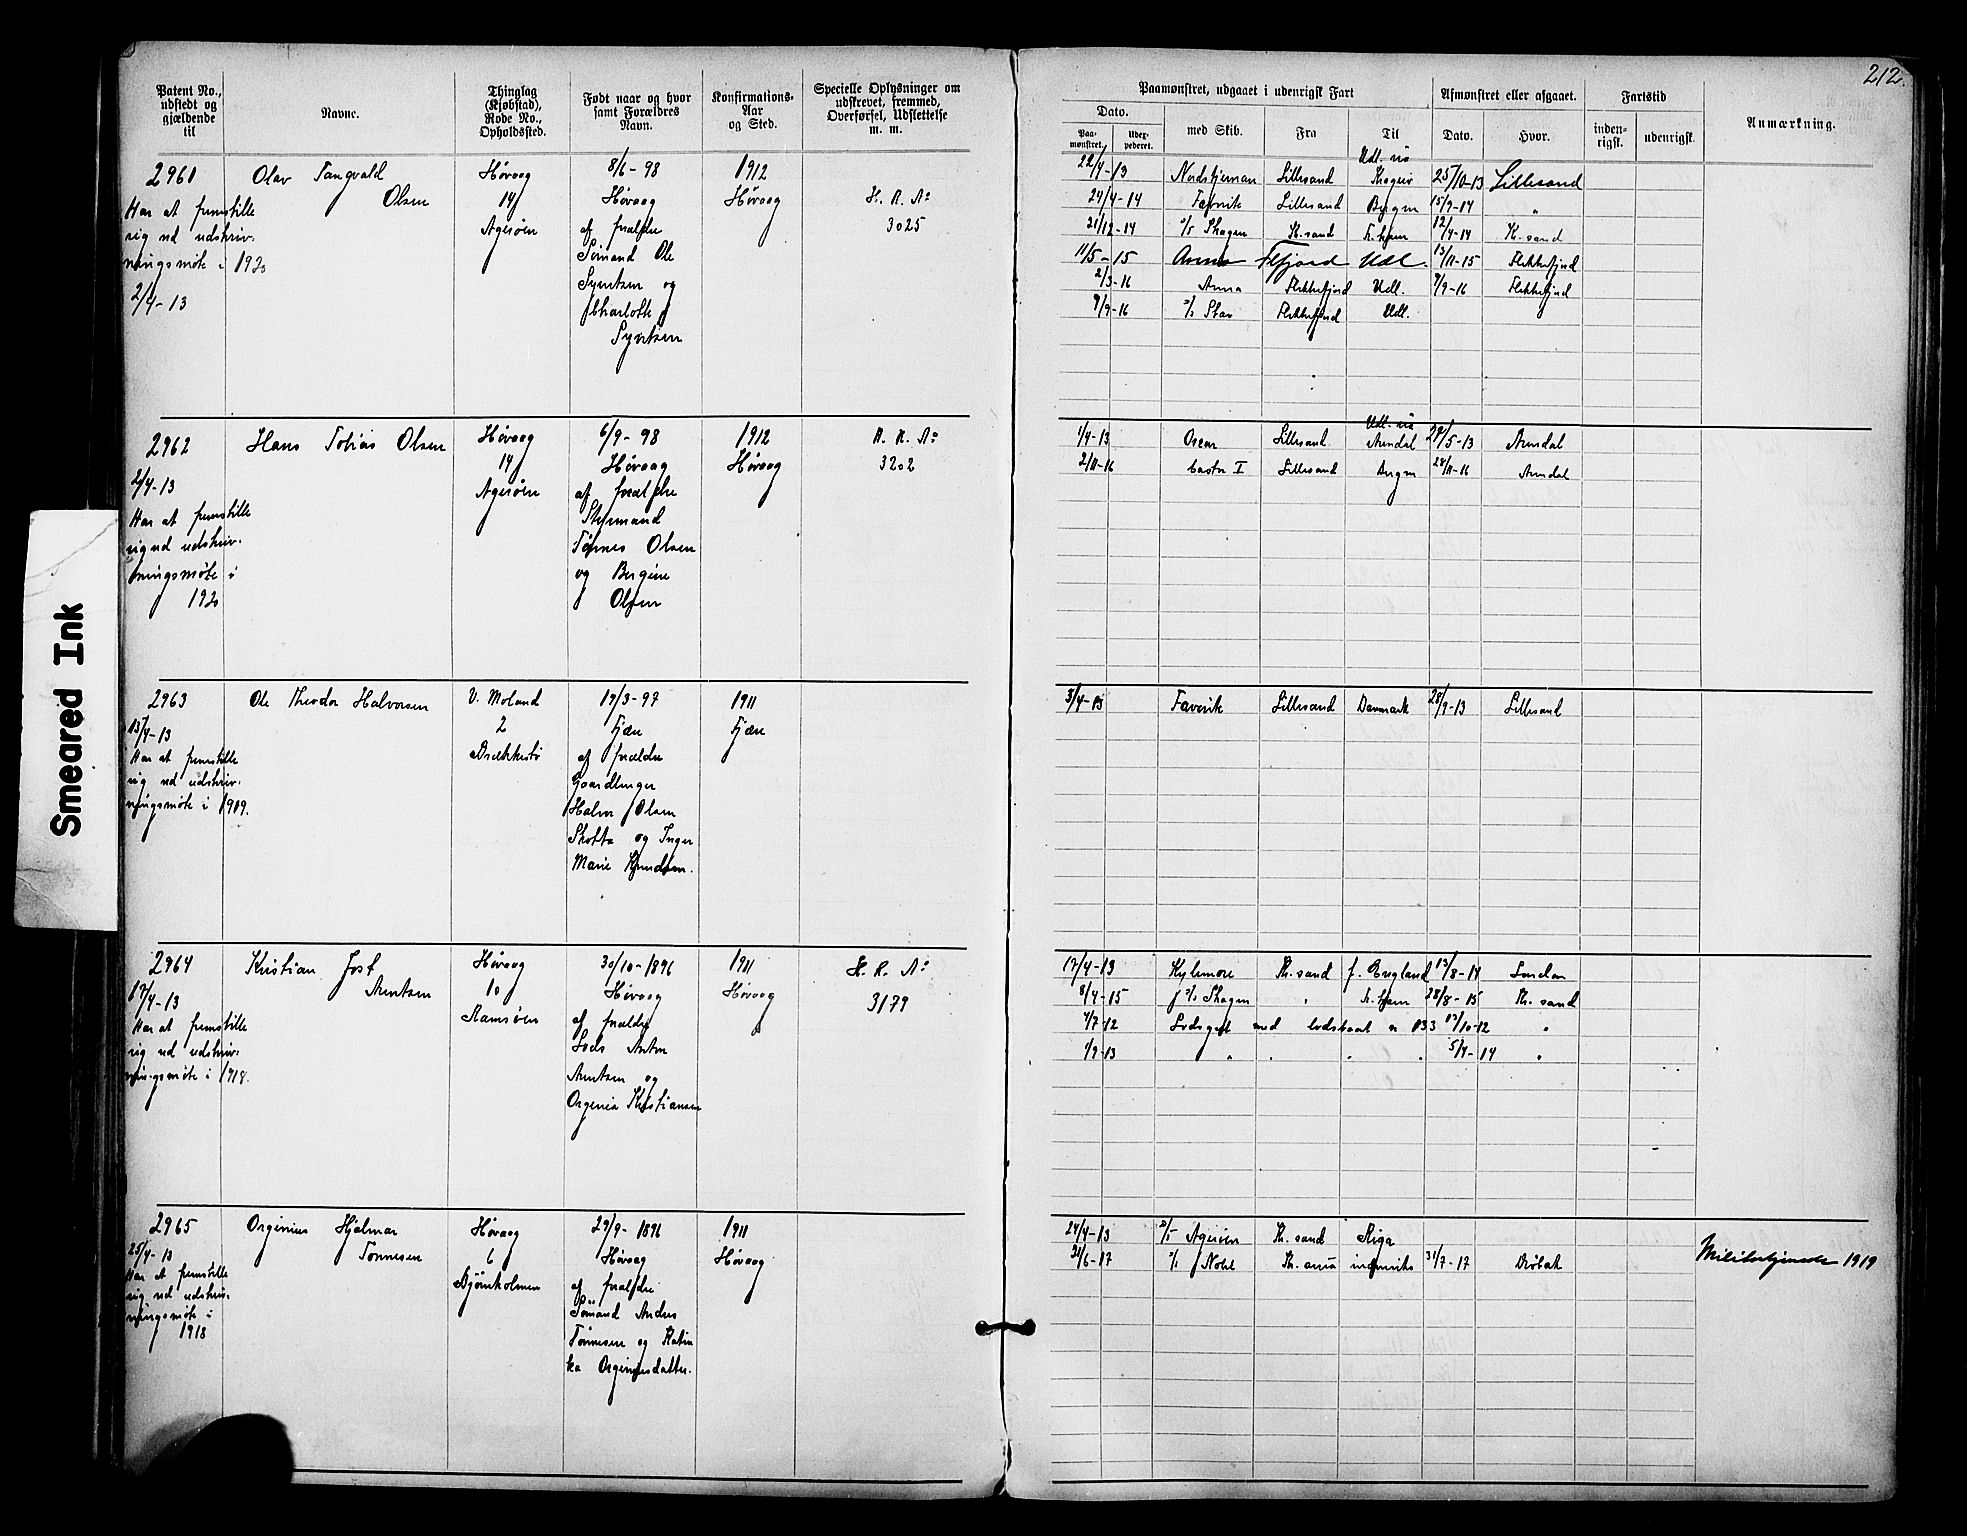 212.
Smeared Ink
Patent No., udstedt og gjældende til
Navne.
Thinglag (Kjøbstad), Rode No., Opholdssted.
Født naar og hvor samt Forældres Navn.
Konfirmations-Aar og Sted.
Specielle Oplysninger om udskrevet, fremmed, Overførsel, Udslettelse m. m.
Paamønstret, udgaaet i udenrigsk Fart
Afmønstret eller afgaaet.
Fartstid
Anmærkning.
Dato.
Paamønstret.
Udexpederet.
med Skib.
Fra
Til
Dato.
Hvor.
indenrigsk.
udenrigsk.
2961
Har at fremstille
sig ved udskriv-
ningsmøte i 1920
2/4-13
Olav Tangvald
Olsen
Høvaag
14
Agerøen
8/6-98
Høvaag
af forældre
Sømand Ole
Syvertsen og
Charlotte
Syvertsen
1912
Høvaag
H. R. No
3025
22/4-13 Nordstjernen Lillesand Udl. via Skagen 25/10-13 Lillesand
24/4-14 Favorite Lillesand Bergen 15/9-14 "
21/12-14 S/S Skagen K.sand Fr.havn 12/4-14 K.sand
11/5-15 Anna Flfjord Udl. 13/11-15 Flekkefjord
2/3-16 Anna Flekkefjord Udl. 9/9-16 Flekkefjord
9/9-16 S/S Star Flekkefjord Udl.
2962
2/4-13
Har at fremstille
sig ved udskriv-
ningsmøte i
1920
Hans Tobias Olsen
Høvaag
14
Agerøen
6/9-98
Høvaag
af forældre
Styrmand
Tønnes Olsen
og Bergine
Olsen
1912
Høvaag
H. R. No
3202
1/4-13 Oscar Lillesand Udl. via Arendal 29/5-13 Arendal
2/11-16 Castor I Lillesand Bergen 28/11-16 Arendal
2963
13/4-13
Har at fremstille
sig ved udskriv-
ningsmøte i 1919.
Ole Theodor Halvorsen
V. Moland
2
Brækkestø
19/3-97
Fjære
af forældre
Gaardbruger
Halvor Olsen
Skotta og Inger
Marie Knudsen.
1911
Fjære
3/4-13 Favorite Lillesand Danmark 28/9-13 Lillesand
2964
17/4-13
Har at fremstille
sig ved udskriv-
ningsmøte i 1918.
Kristian Jost
Arntsen
Høvaag
10
Ramsøen
30/10-1896
Høvaag
af forældre
Lods Anton
Arntsen og
Orginia Kristiansen
1911
Høvaag
H. R. No
3179
17/4-13 Kylemore Kr.sand f. England 13/8-14 London
8/4-15 S/S Skagen " Fr.havn 28/8-15 Kr.sand
1/7-12 Lodsgut med lodsbaat n 133 17/10-12 "
1/9-13 " " " " 5/4-14 "
2965
25/4-13
Har at fremstille
sig ved udskriv-
ningsmøte i
1918
Orginius Hjalmar
Tønnesen
Høvaag
6
Bjørnholmen
29/9-1896
Høvaag
af forældre
Sømand Anders
Tønnesen og Katin
ka Orginiusdatter.
1911
Høvaag
24/4-13 S/S Agerøen Kr.sand Riga
21/6-17 S/S Nobel Kr.ania indenriks 31/7-17 Drøbak
Militærtjeneste 1919